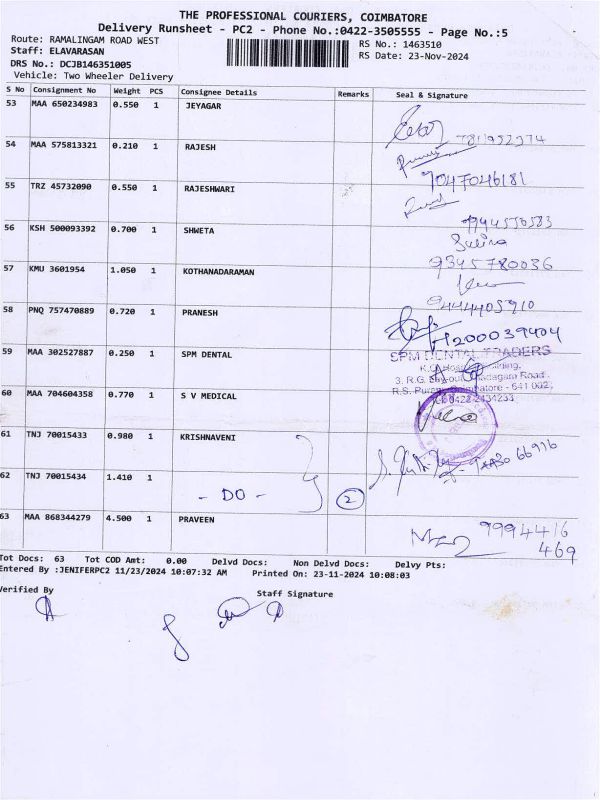 THE PROFESSIONAL COURIERS, COIMBATORE
Delivery Runsheet - PC2 - Phone No.:0422-3505555 - Page No.:5
Route: RAMALINGAM ROAD WEST
RS No.: 1463510
Staff: ELAVARASAN
RS Date: 23-Nov-2024
DRS No.: DCJB146351005
Vehicle: Two Wheeler Delivery
S No Consignment No Weight PCS Consignee Details Remarks Seal & Signature
53 MAA 650234983 0.550 1 JEYAGAR
54 MAA 575813321 0.210 1 RAJESH
7047046181
55 TRZ 45732090 0.550 1 RAJESHWARI
56 KSH 500093392 0.700 1 SHWETA
9345780036
57 KMU 3601954 1.050 1 KOTHANADARAMAN
9444405910
58 PNQ 757470889 0.720 1 PRANESH
9200039404
59 MAA 302527887 0.250 1 SPM DENTAL
SPM DENTAL TRADERS
60 MAA 704604358 0.770 1 S V MEDICAL
61 TNJ 70015433 0.980 1 KRISHNAVENI
62 TNJ 70015434 1.410 1
- DO - 2
63 MAA 868344279 4.500 1 PRAVEEN
9994416
469
Tot Docs: 63 Tot COD Amt: 0.00 Delvd Docs: Non Delvd Docs: Delvy Pts:
Entered By :JENIFERPC2 11/23/2024 10:07:32 AM Printed On: 23-11-2024 10:08:03
Verified By
Staff Signature